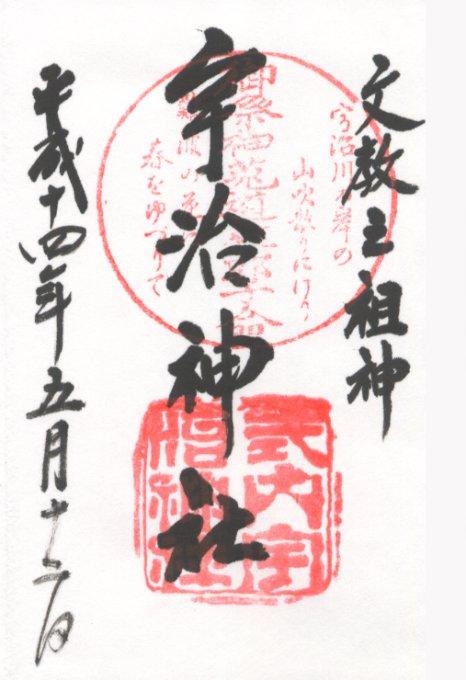 文教之祖神
宇治川の岸の
山吹散りにけり
春をゆづりて
宇治神社
式内宇
治神社
平成十四年五月十二日